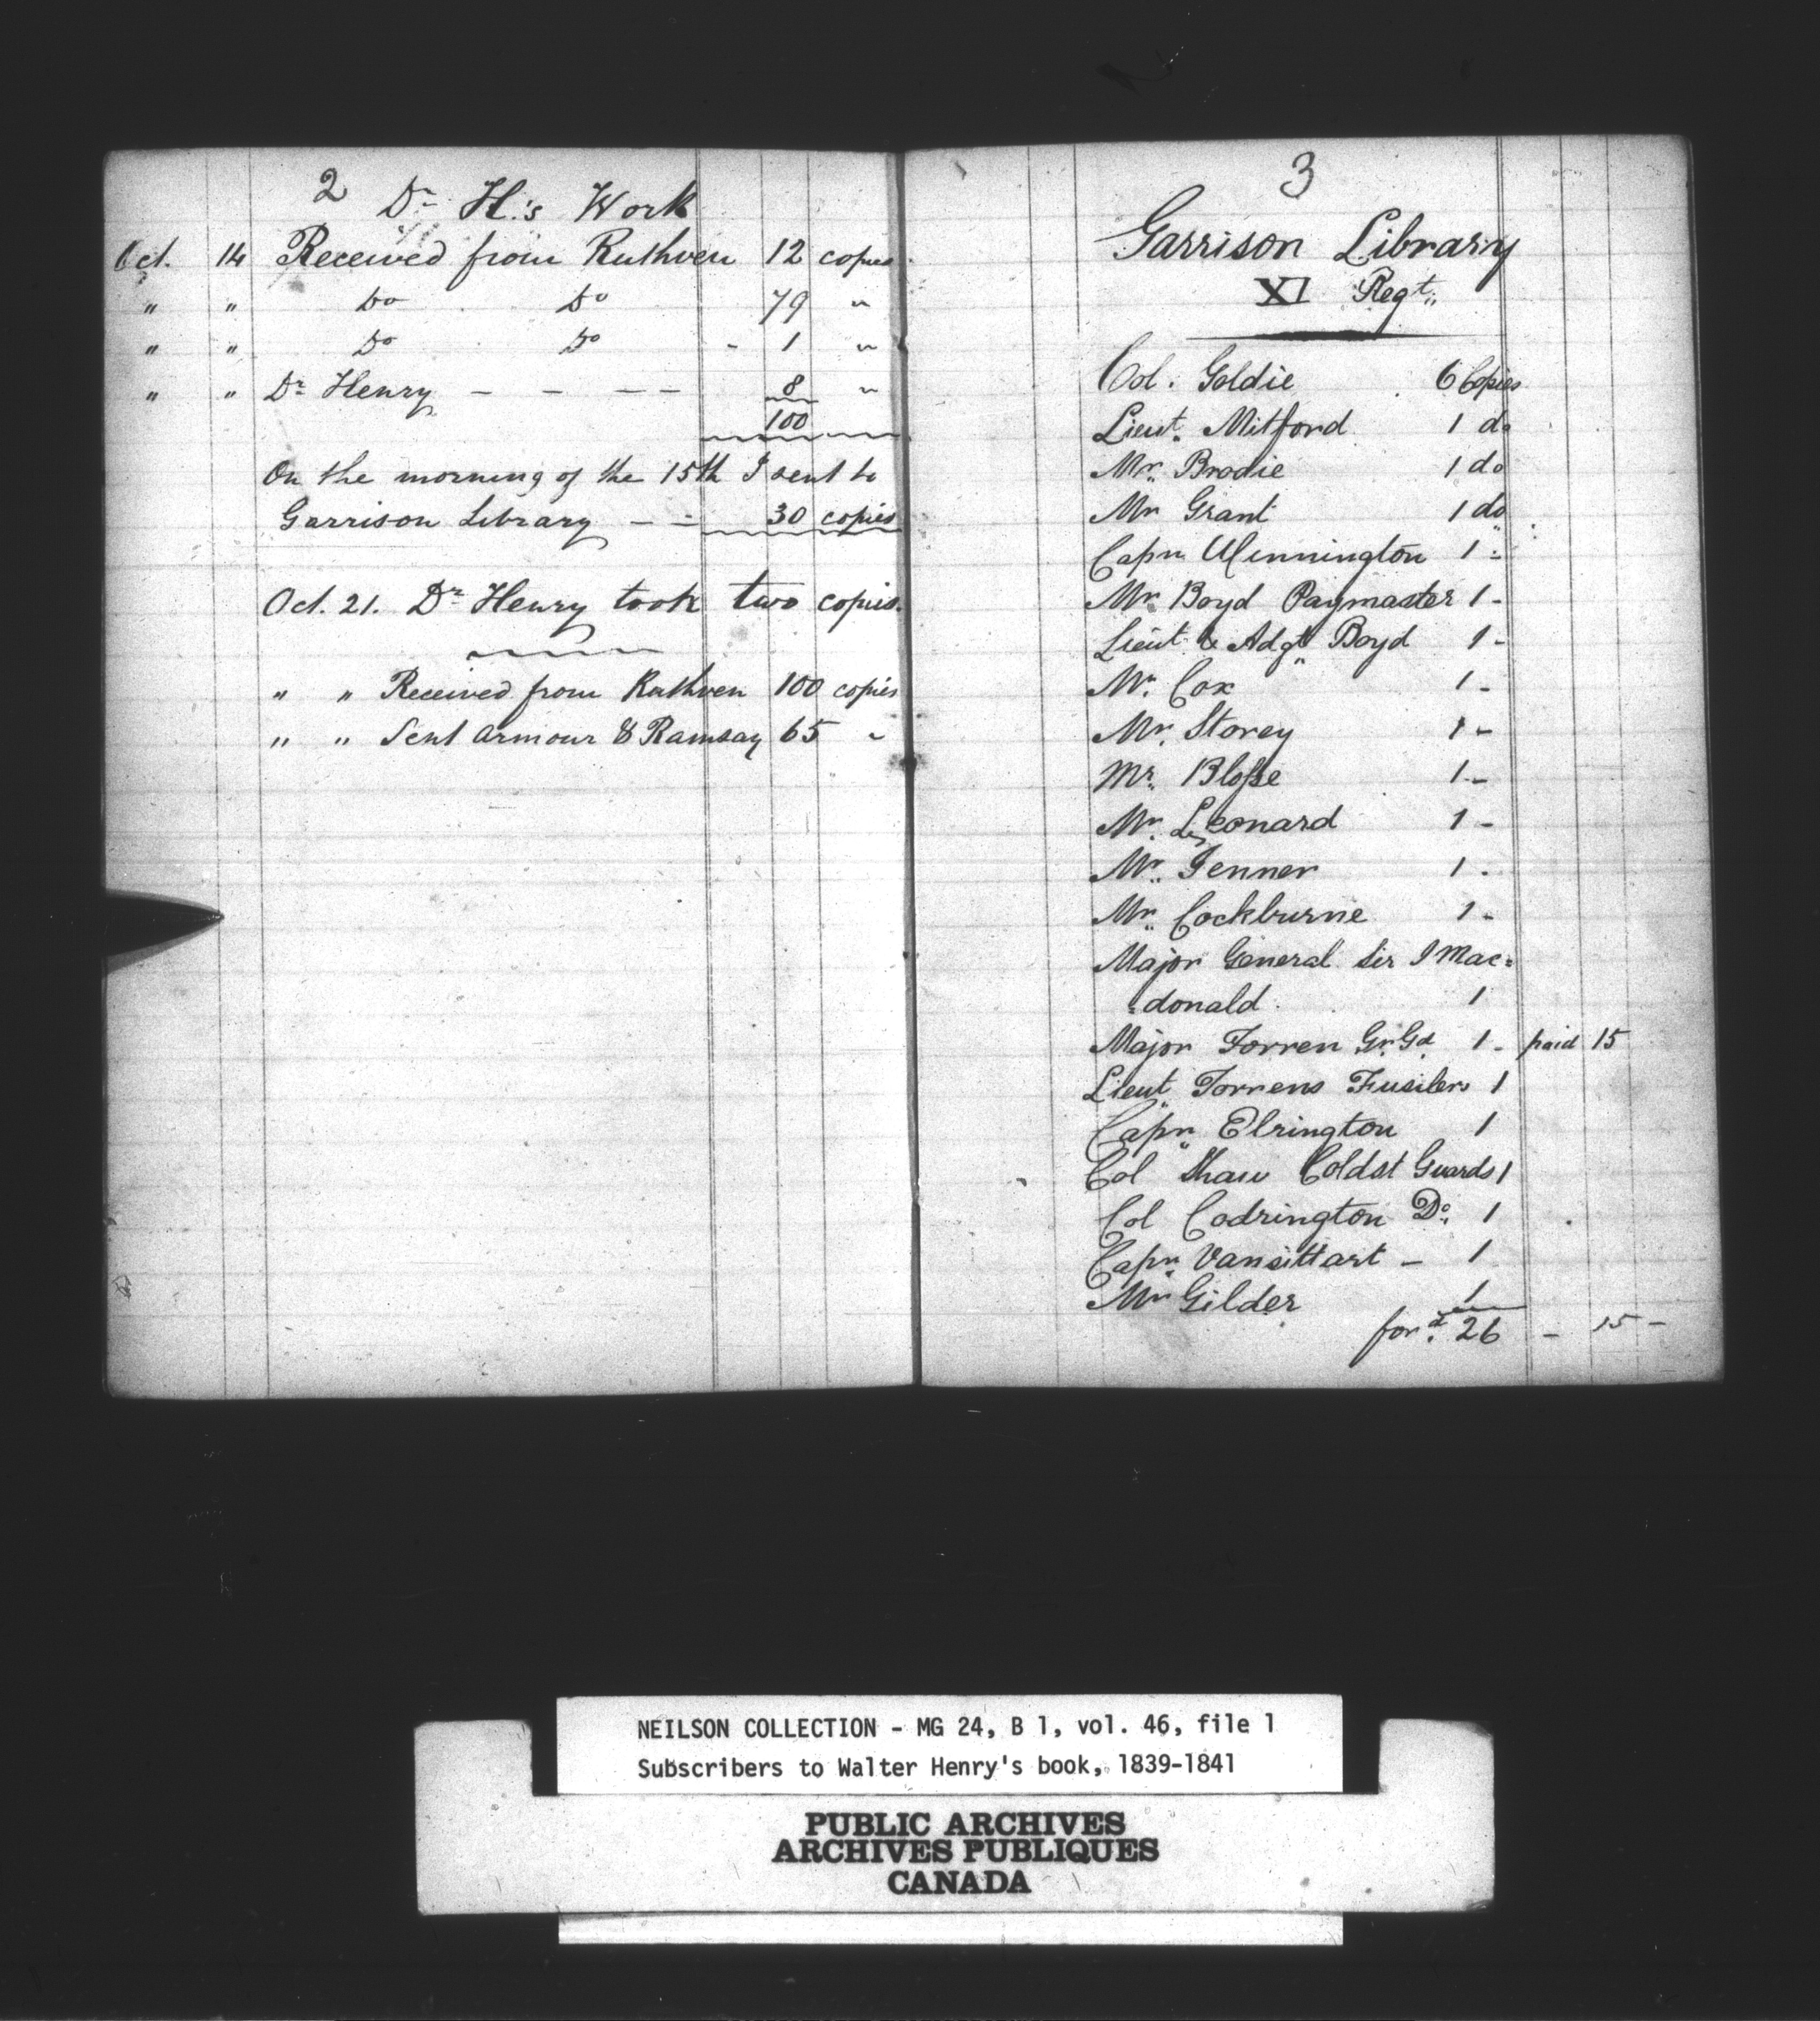 2
Dr H.'s Work
Oct. 14 Received from Ruthven 12 copies
" " Do Do 79 "
" " Do Do - 1 "
" " Dr Henry - - - - 8 "
100
On the morning of the 15th I sent to
Garrison Library - - 30 copies
Oct. 21. Dr Henry took two copies.
" " Received from Ruthven 100 copies
" " Sent Armour & Ramsay 65 "
3
Garrison Library
XI Regt.
Col. Goldie 6 Copies
Lieut. Mitford 1 do
Mr. Brodie 1 do
Mr Grant 1 do
Capn Winnington 1 -
Mr Boyd Paymaster 1 -
Lieut & Adgt Boyd 1 -
Mr. Cox 1 -
Mr. Storey 1 -
Mr. Blosse 1 -
Mr. Leonard 1 -
Mr. Jenner 1 -
Mr. Cockburne 1 -
Major General Sir J Mac=
=donald 1
Major Torren Gr. Gd. 1 - paid 15
Lieut Torrens Fusilers 1
Capn Elrington 1
Col Shaw Coldst Guards 1
Col Codrington Do. 1
Capn Vansittart - 1
Mr Gilder 1
ford. 26 - 15 -
NEILSON COLLECTION - MG 24, B 1, vol. 46, file 1
Subscribers to Walter Henry's book, 1839-1841
PUBLIC ARCHIVES
ARCHIVES PUBLIQUES
CANADA